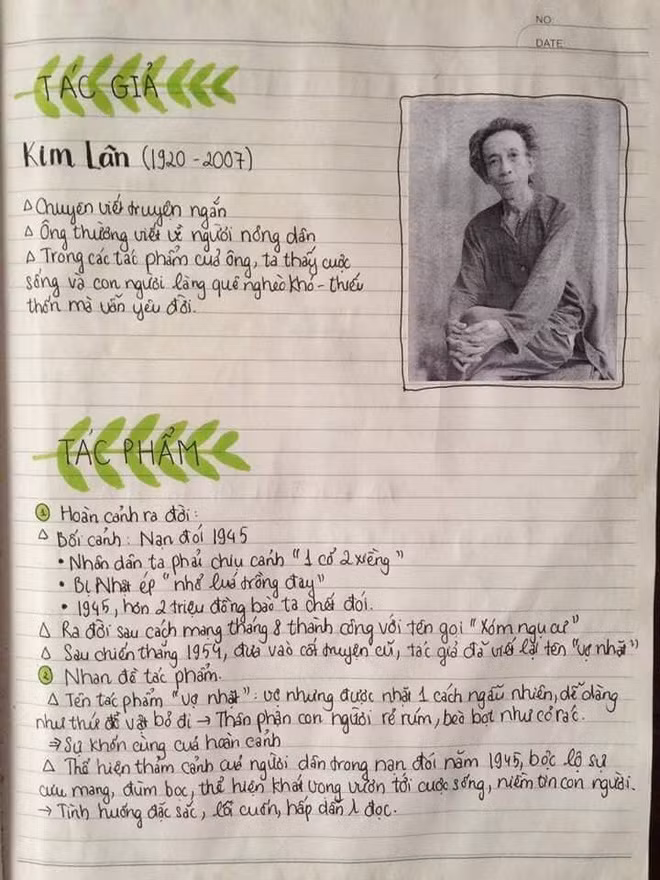 NO.
DATE
TÁC GIẢ
Kim Lân (1920 - 2007)
Δ Chuyên viết truyện ngắn
Δ Ông thường viết về người nông dân
Δ Trong các tác phẩm của ông, ta thấy cuộc
sống và con người làng quê nghèo khó - thiếu
thốn mà vẫn yêu đời.
TÁC PHẨM
1 Hoàn cảnh ra đời:
Δ Bối cảnh: Nạn đói 1945
• Nhân dân ta phải chịu cảnh "1 cổ 2 xiềng"
• Bị Nhật ép "nhổ luá trồng đay"
• 1945, hơn 2 triệu đồng bào ta chết đói.
Δ Ra đời sau cách mạng tháng 8 thành công với tên gọi "Xóm ngụ cư"
Δ Sau chiến thắng 1954, dựa vào cốt truyện cũ, tác giả đã viết lại tên "vợ nhặt"
2 Nhan đề tác phẩm.
Δ Tên tác phẩm "vợ nhặt": vợ nhưng được nhặt 1 cách ngẫu nhiên, dễ dàng
như thứ đồ vật bỏ đi → Thân phận con người rẻ rúm, bèo bọt như cỏ rác.
⇒ Sự khốn cùng của hoàn cảnh
Δ Thể hiện thảm cảnh của người dân trong nạn đói năm 1945, bộc lộ sự
cưu mang, đùm bọc, thể hiện khát vọng vươn tới cuộc sống, niềm tin con người.
→ Tình huống đặc sắc, lôi cuốn, hấp dẫn đọc.